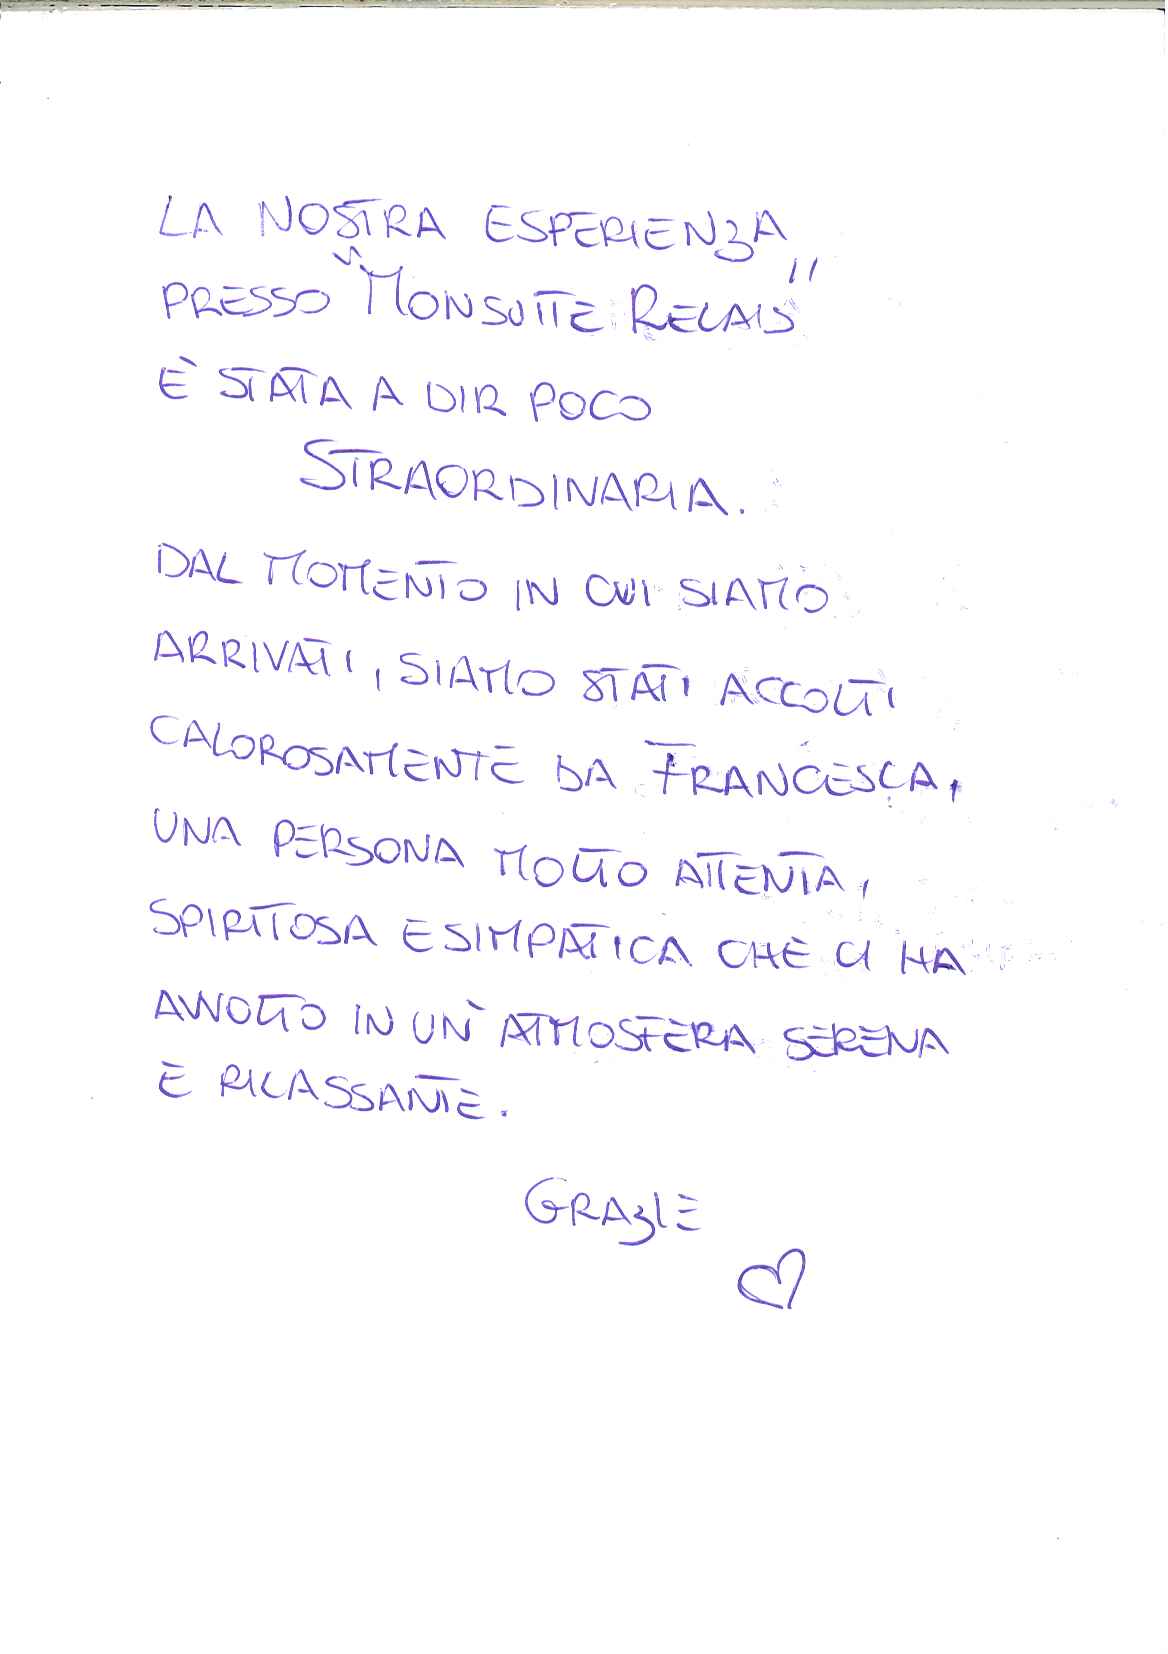 LA NOSTRA ESPERIENZA
PRESSO "MONSUITE RELAIS"
È STATA A DIR POCO
STRAORDINARIA.
DAL MOMENTO IN CUI SIAMO
ARRIVATI, SIAMO STATI ACCOLTI
CALOROSAMENTE DA FRANCESCA,
UNA PERSONA MOLTO ATTENTA,
SPIRITOSA E SIMPATICA CHE CI HA
AVVOLTO IN UN'ATMOSFERA SERENA
E RILASSANTE.
GRAZIE